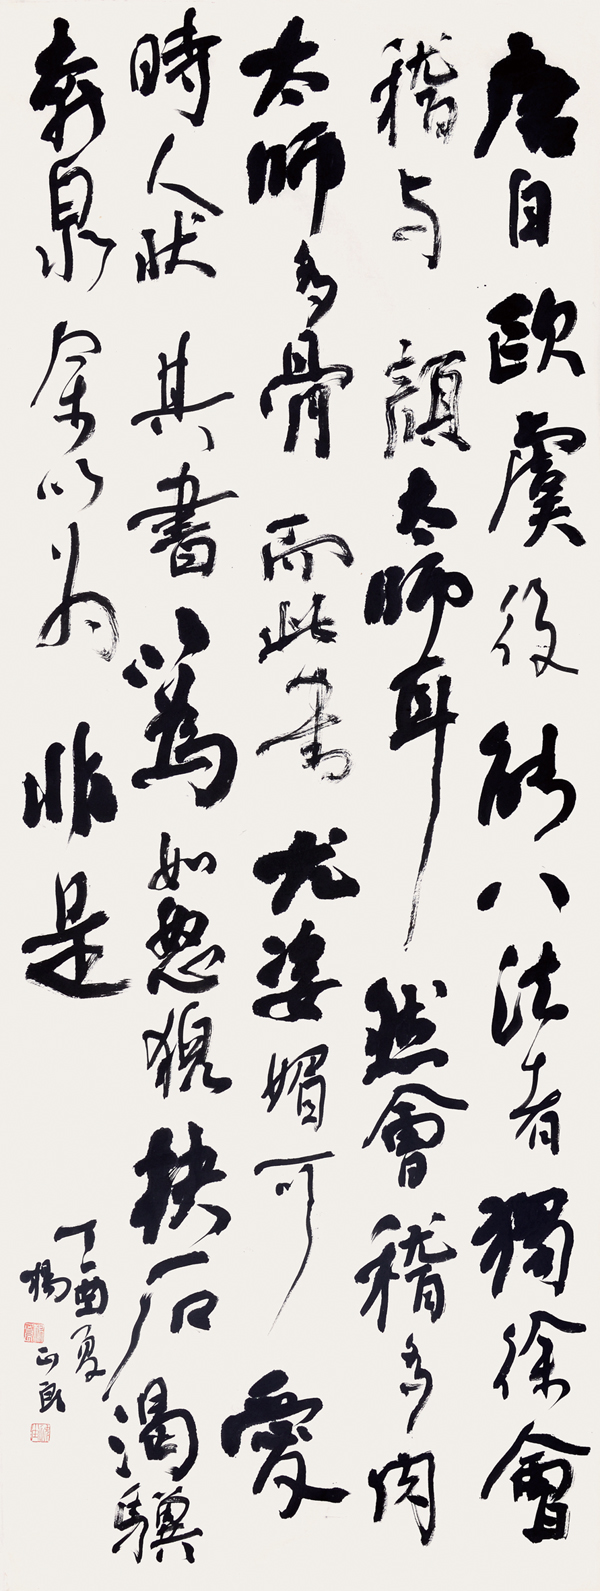 唐自歐虞後能八法者獨徐會
稽与顏太師耳然會稽多肉
太師多骨而此書尤姿媚可愛
時人狀其書以為如怒猊抉石渴驥
奔泉余以为非是
丁酉夏
楊正良